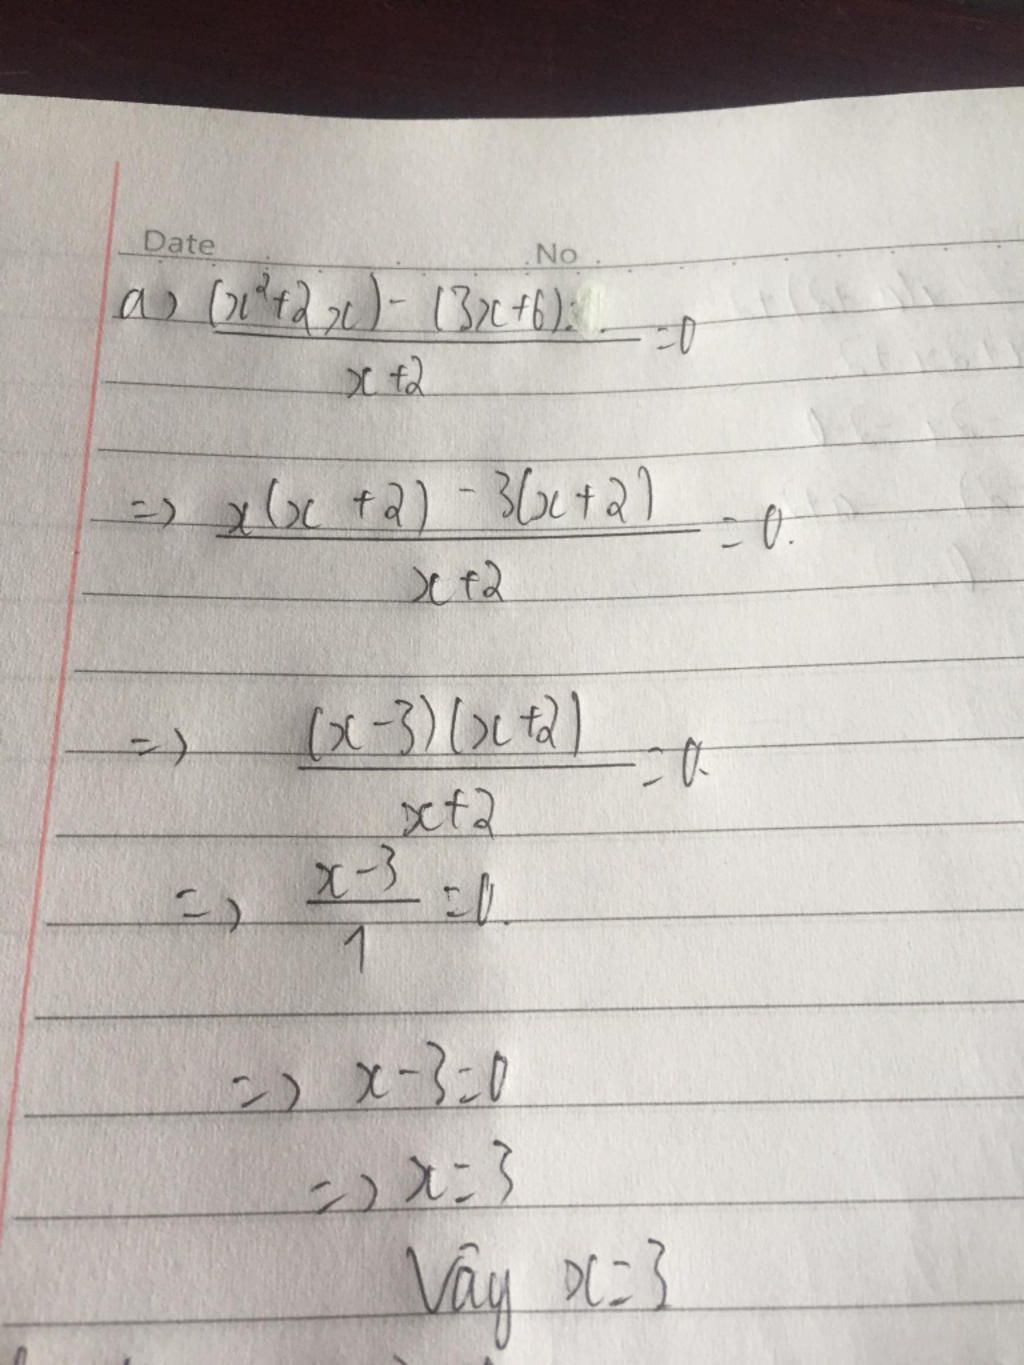 Date No
a) (x²+2x) - (3x+6):
x+2
=0
=> x(x +2) - 3(x+2)
x+2
= 0.
=> (x-3)(x+2)
x+2
=0.
=> x-3
1
=0.
=> x-3=0
=> x=3
Vậy x=3